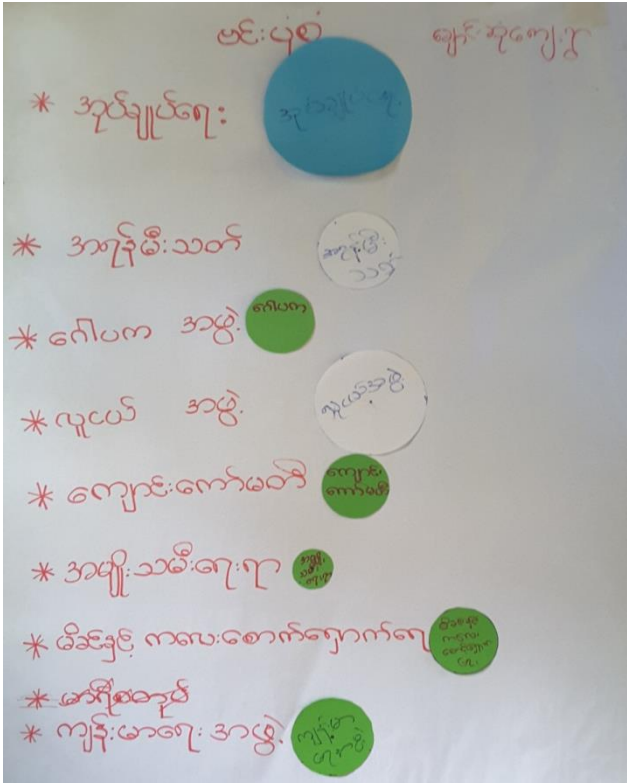 ဗင်းပုံစံ ချောင်းဆုံကျေးရွာ
* အုပ်ချုပ်ရေး အုပ်ချုပ်ရေး
* အရန်မီးသတ် အရန်မီးသတ်
* ဂေါပက အဖွဲ့ ဂေါပက
* လူငယ် အဖွဲ့ လူငယ်အဖွဲ့
* ကျောင်းကော်မတီ ကျောင်းကော်မတီ
* အမျိုးသမီးရေးရာ အမျိုးသမီးရေးရာ
* မိခင်နှင့် ကလေးစောင့်ရှောက်ရေး
* ကျန်းမာရေး အဖွဲ့ ကျန်းမာရေးအဖွဲ့